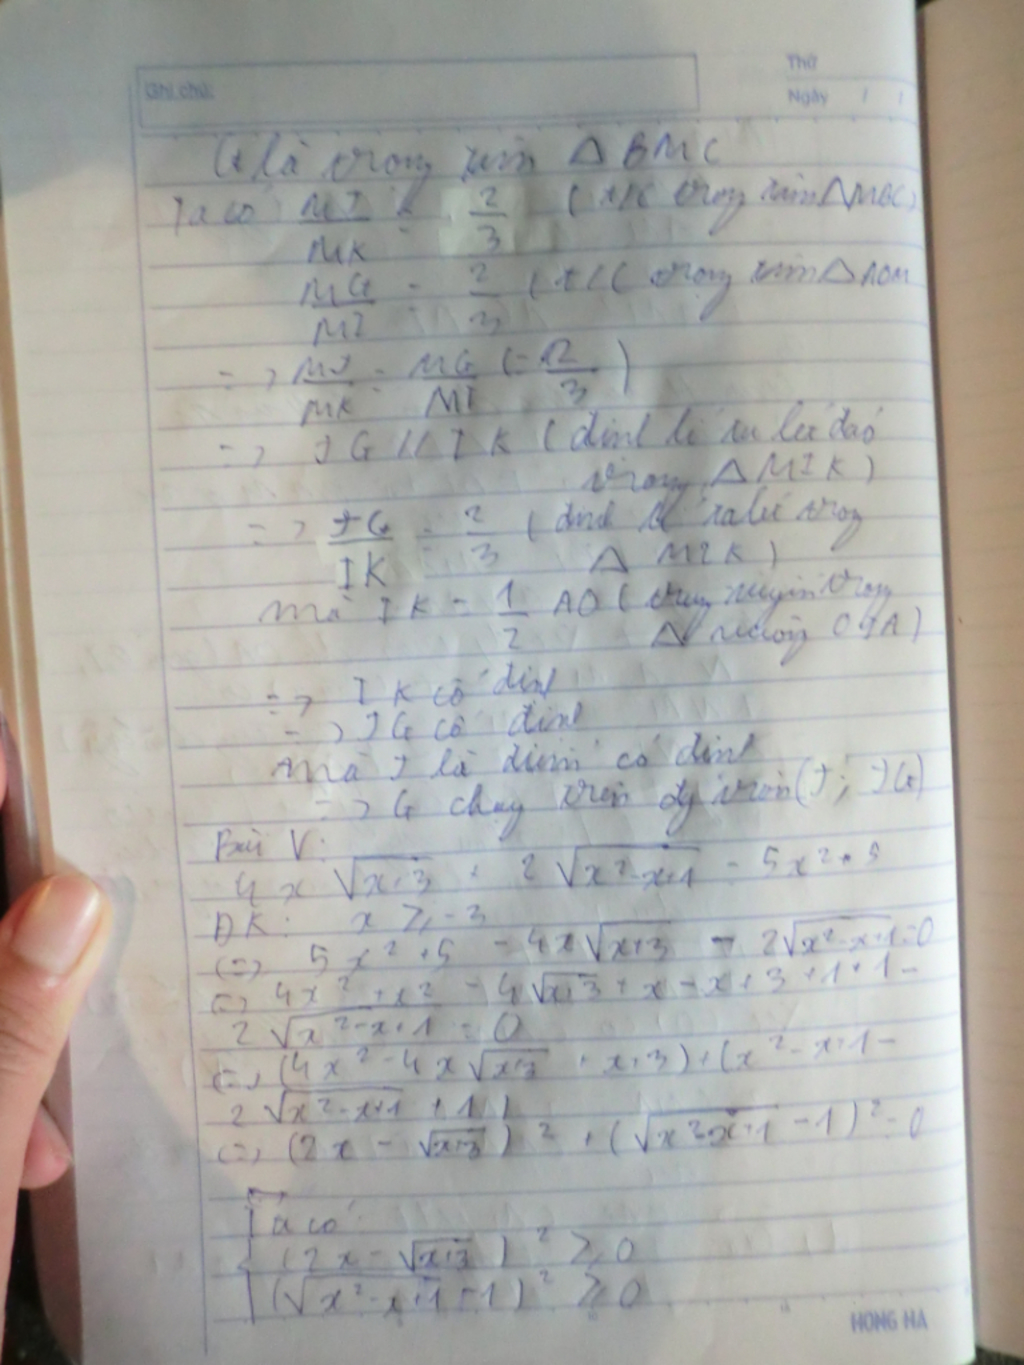 Ghi chú:
Thứ
Ngày / /
G là trọng tâm △ BMC
Ta có MJ/MK = 2/3 (t/c trọng tâm △MBC)
MG/MI = 2/3 (t/c trọng tâm △ AOM
=> MJ/MK = MG/MI (= 2/3)
=> JG // IK (định lí ta lét đảo
trong △ MIK)
=> JG/IK = 2/3 (định lí ta lét trong
△ MIK)
mà IK = 1/2 AO (trung tuyến trong
△ vuông OIA)
=> IK cố định
=> JG cố định
Mà J là điểm cố định
=> G chạy trên đg tròn (J; JG)
Bài V:
4x √x+3 + 2 √x²-x+1 = 5x² + 5
ĐK: x ≥ -3
(=) 5x² + 5 - 4x√x+3 - 2√x²-x+1 = 0
(=) 4x² + x² - 4√x+3 + x - x + 3 + 1 + 1 -
2 √x²-x+1 = 0
(=) (4x² - 4x √x+3 + x+3) + (x² - x + 1 -
2 √x²-x+1 + 1)
(=) (2x - √x+3)² + (√x²-x+1 - 1)² = 0
Ta có
(2x - √x+3)² ≥ 0
(√x²-x+1 - 1)² ≥ 0
HONG HA